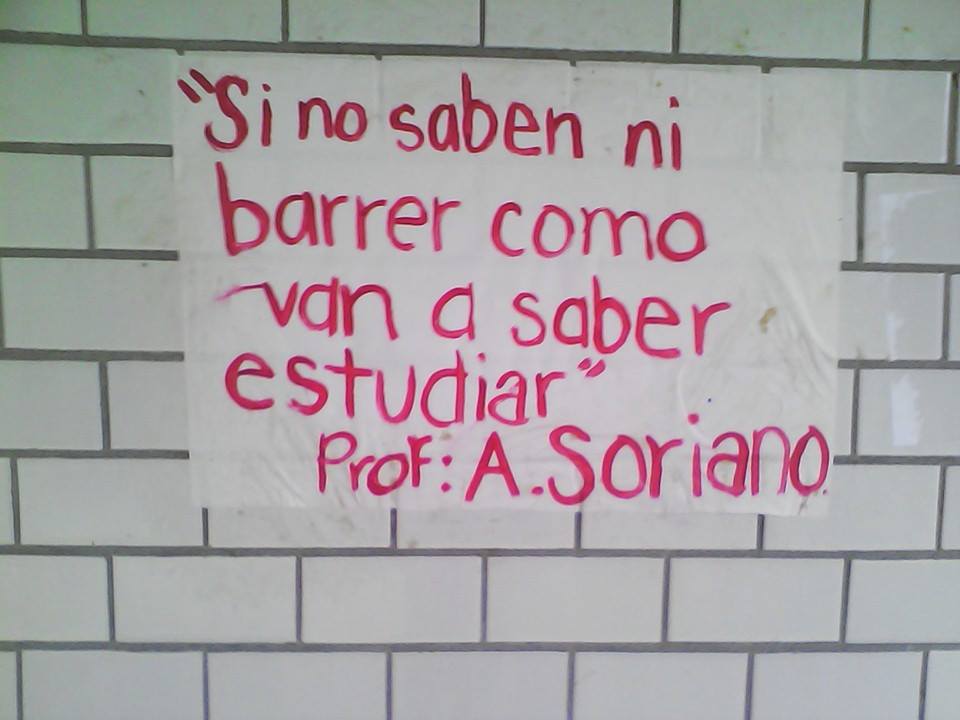 "Si no saben ni
barrer como
van a saber
estudiar"
Prof: A. Soriano.